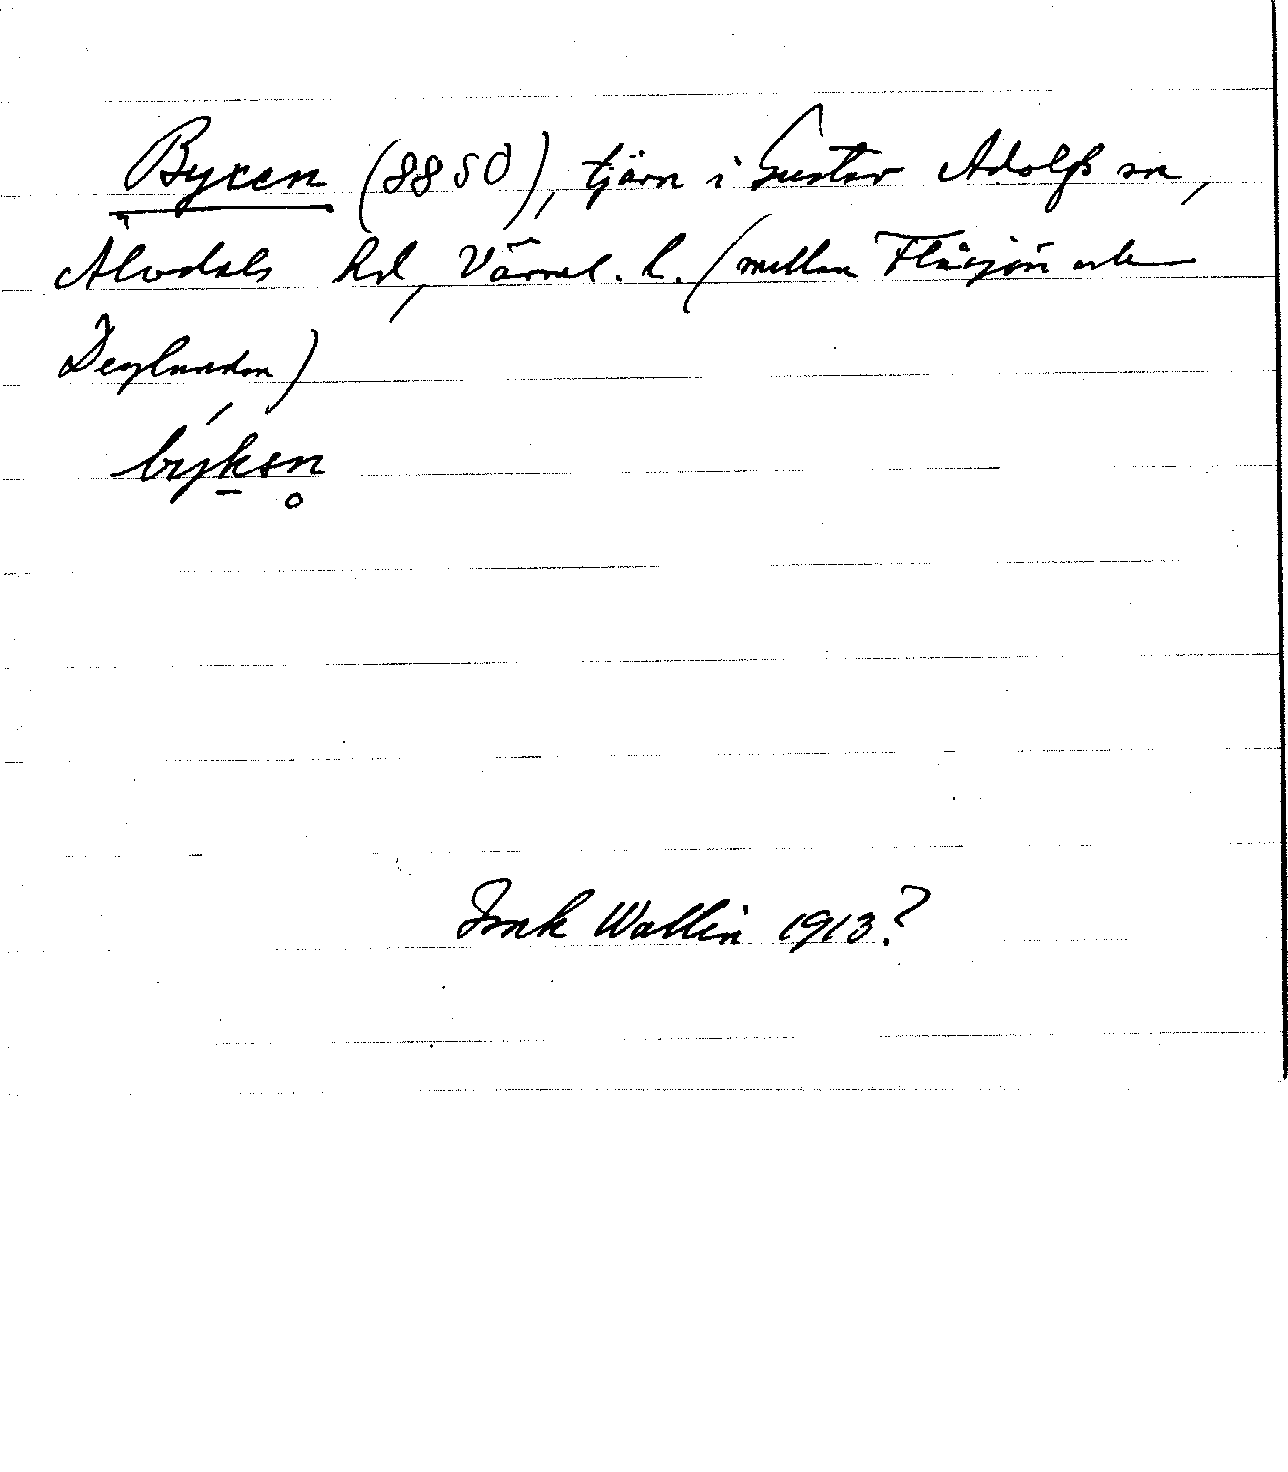 Byxen (8850), tjärn i Gustav Adolfs sn,
Älvdals hd, Värml. l. (mellan Flåsjön och
Deglunden)
by̍ksn̥
Isak Wallin 1913?